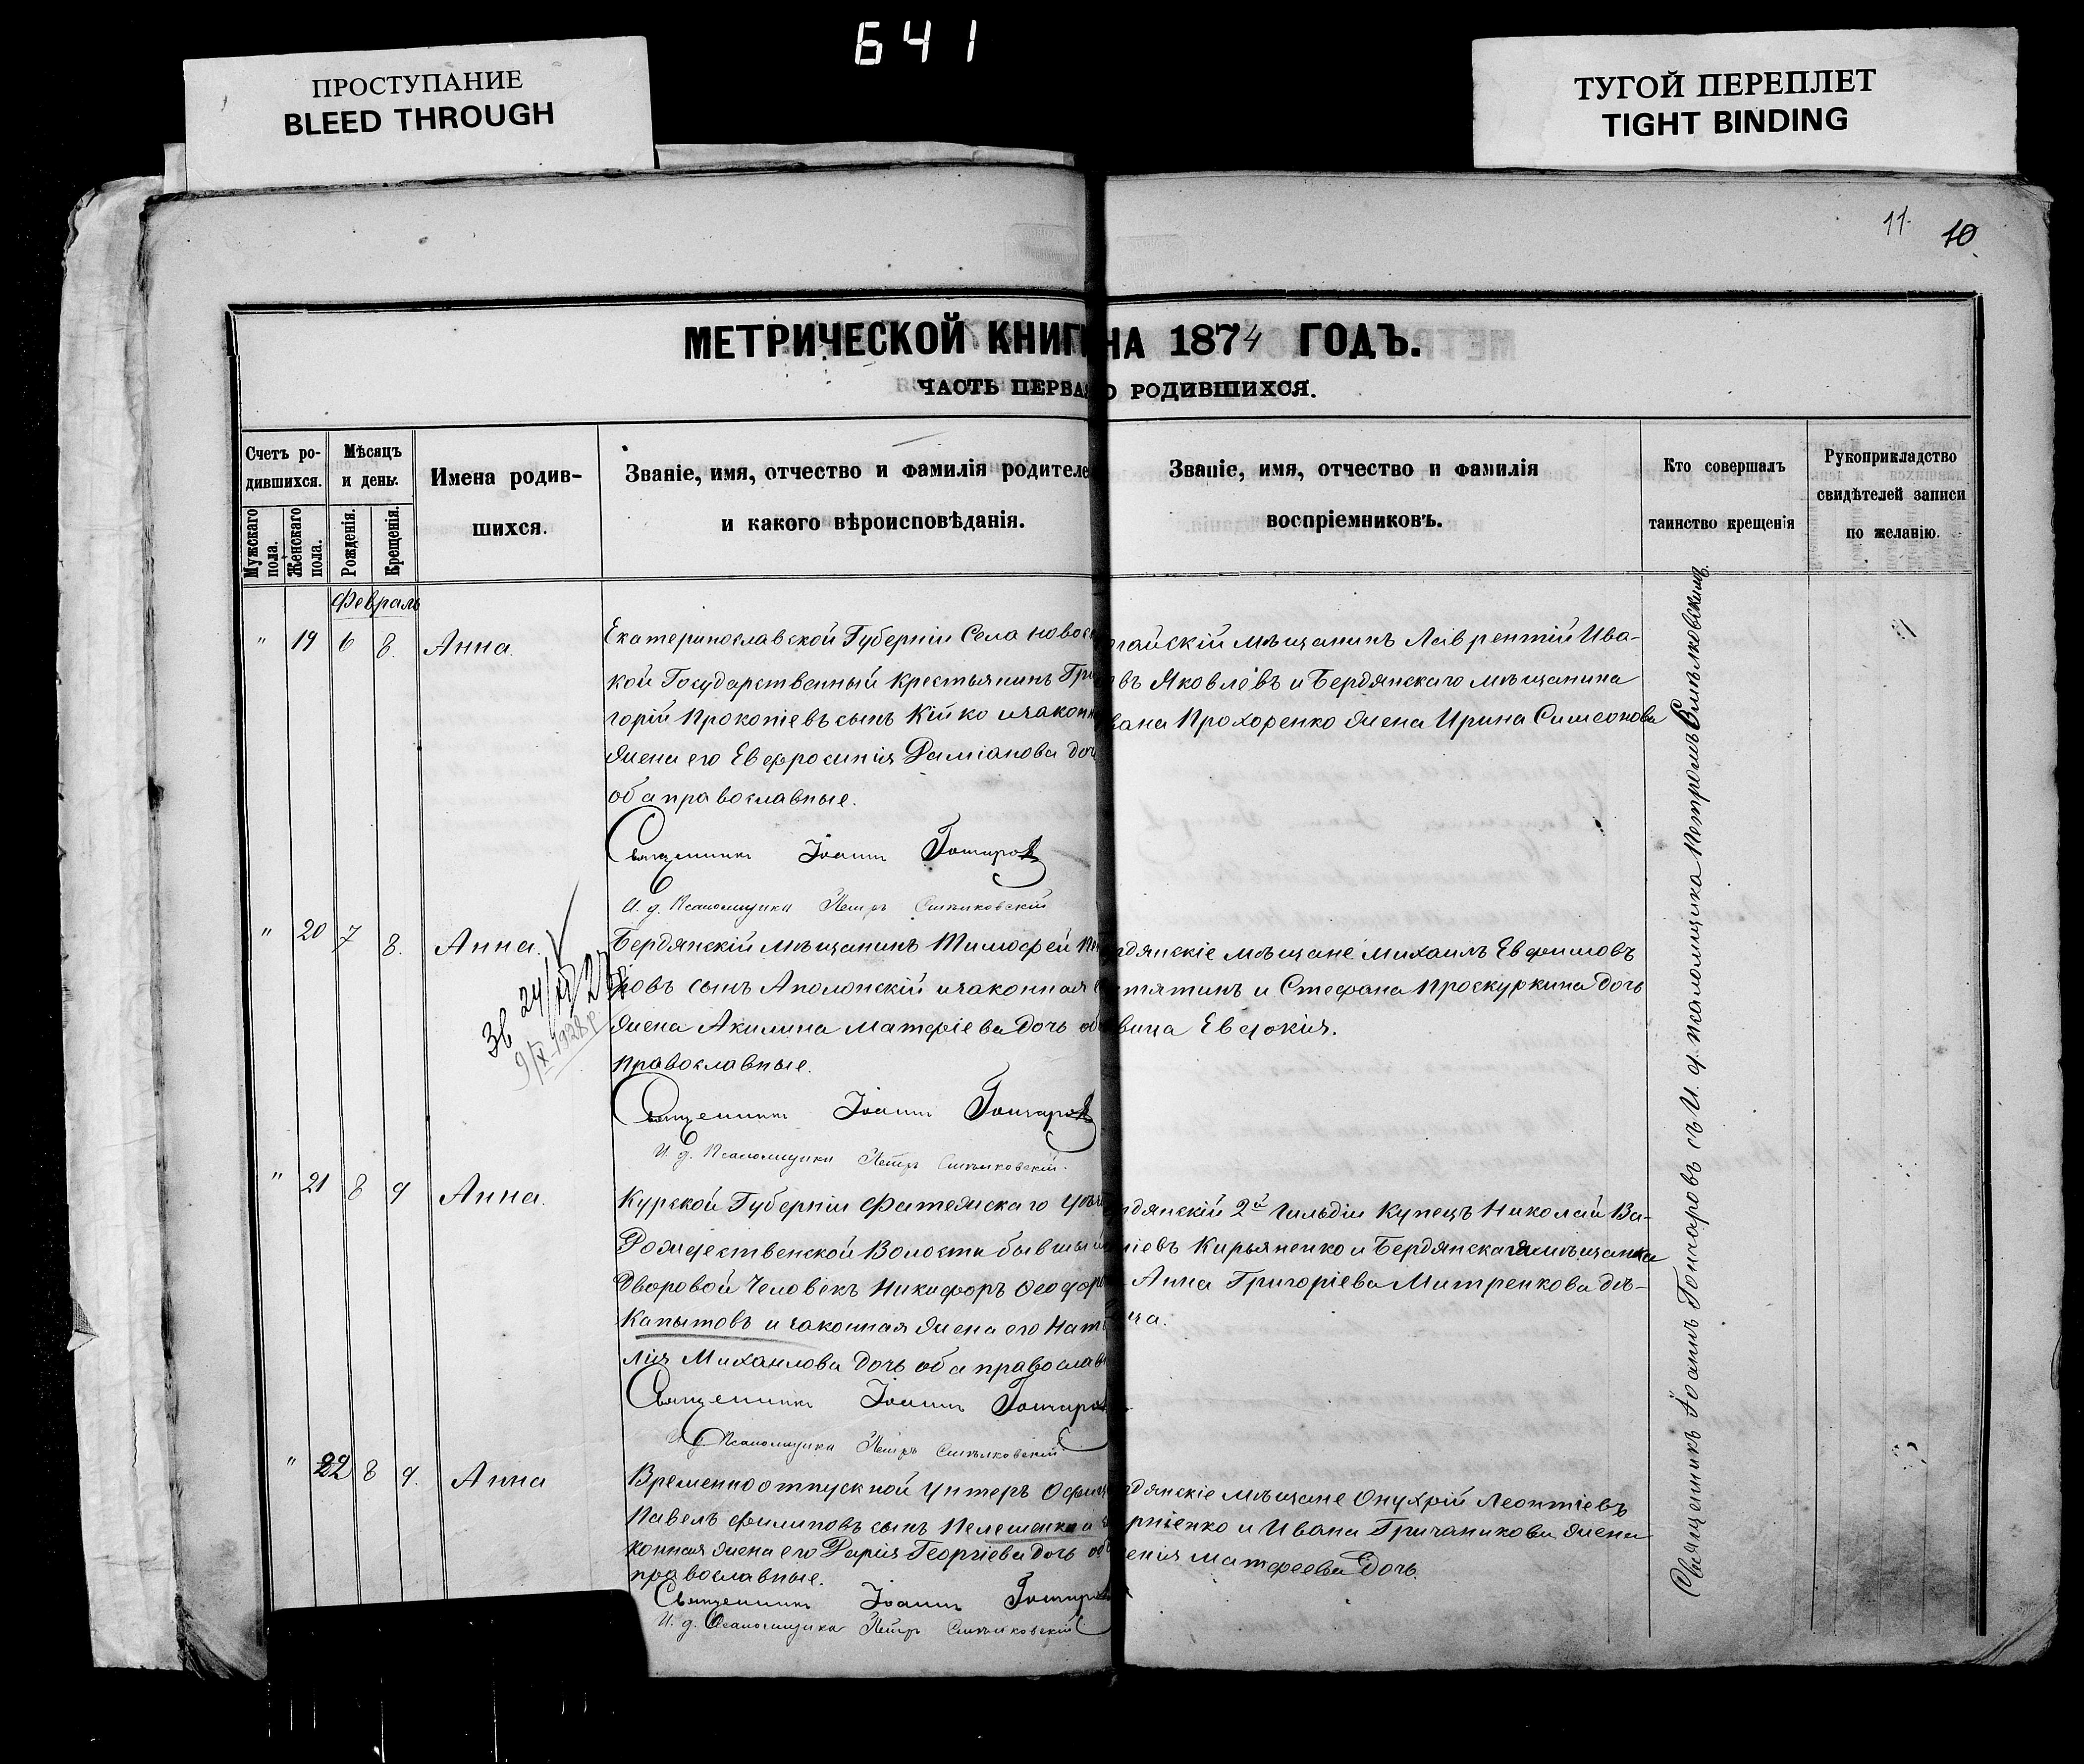 641
ПРОСТУПАНИЕ
BLEED THROUGH
ТУГОЙ ПЕРЕПЛЕТ
TIGHT BINDING
11. 10
МЕТРИЧЕСКОЙ КНИГ НА 1874 ГОДЪ.
ЧАСТЬ ПЕРВАЯ О РОДИВШИХСЯ.
Счетъ родившихся.
Мужскаго пола.
Женскаго пола.
Мѣсяцъ и день.
Рожденія.
Крещенія.
Имена родив-
шихся.
Званіе, имя, отчество и фамилія родителе
и какого вѣроисповѣданія.
Званіе, имя, отчество и фамилія
воспріемниковъ.
Кто совершалъ
таинство крещенія
Рукоприкладство
свидѣтелей записи
по желанію.
Февраль
" 19 6 8. Анна.
Екатеринославской Губерніи Села
кой Государственный крестьянинъ Гри
горій Прокопіевъ сынъ Кійко и законн
жена его Евфросинія Даміанова доч
оба православные.
Священникъ Іоаннъ Гончаровъ
И. д. Псаломщика Петръ
гайскій мѣщанинъ Лаврентій Ива-
въ Яковлевъ и Бердянскаго мѣщанина
вана Прохоренко жена Ирина Симеонова
" 20 7 8. Анна.
Зв 24/
9/IX-1928 р
Бердянскій мѣщанинъ Тимофей
новъ сынъ Аполонскій и законная
жена Акилина Матфіева дочь об
православные.
Священникъ Іоаннъ Гончаровъ
И. д. Псаломщика Петръ
рдянскіе мѣщане Михаилъ Евфимовъ
тятинъ и Стефана Проскуркина дочь
вица Евдокія.
" 21 8 9 Анна.
Курской Губерніи Фатежскаго уѣз
Рождественской Волости бывшый
Дворовой Человекъ Никифоръ Феодор
Капытовъ и законная жена его Ната
лія Михаилова дочь оба православ
Священникъ Іоаннъ Гончаровъ
И. д. Псаломщика Петръ
рдянскій 2й Гильдіи Купецъ Николай Ва-
ліевъ Кирьяненко и Бердянская мѣщанка
Анна Григоріева Митренкова дѣ-
ица.
" 22 8 9. Анна
Временноотпускной Унтеръ Офиц
Павелъ Филиповъ сынъ Пелешенко и
конная жена его Дарія Георгіева дочь об
православные.
Священникъ Іоаннъ Гончаровъ
И. д. Псаломщика Петръ
рдянскіе мѣщане Онуфрій Леонтіевъ
рпіенко и Ивана Гричаникова жена
енія Матфеева дочь.
Священникъ Іоаннъ Гончаровъ съ И. д. псаломщика Петромъ